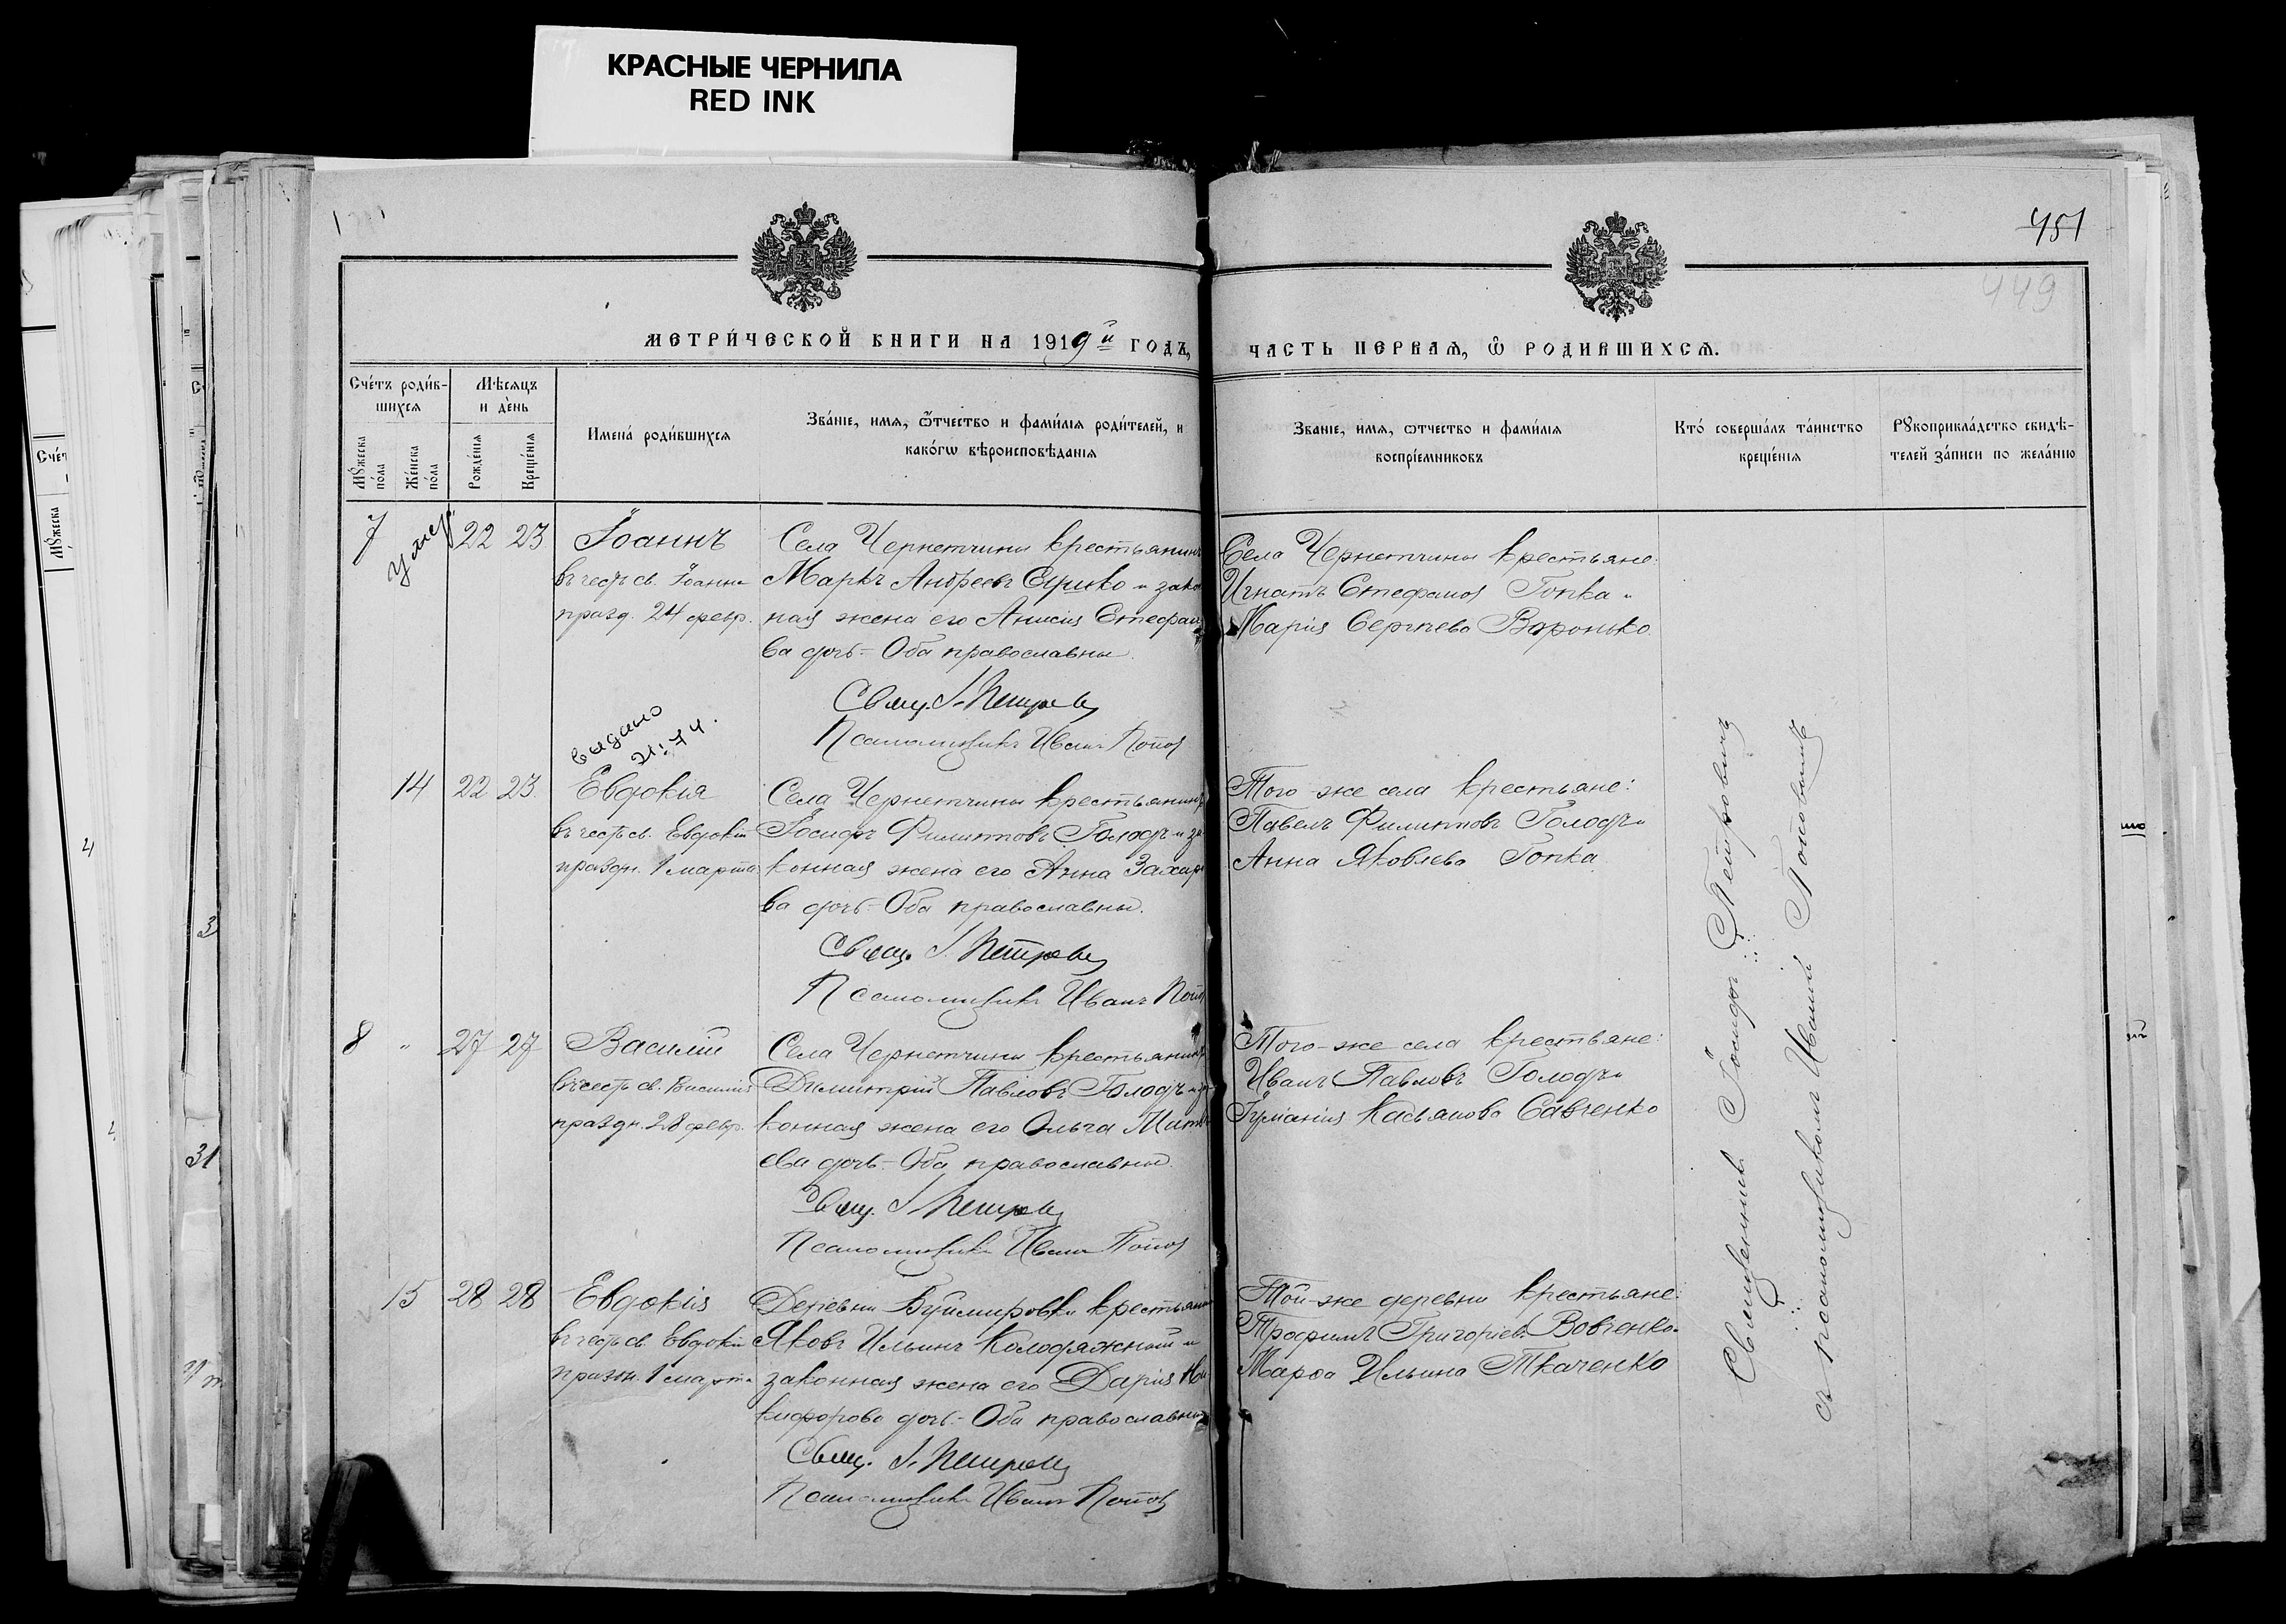 КРАСНЫЕ ЧЕРНИЛА
RED INK
451
449
МЕТРИ́ЧЕСКОЙ КНИГИ НА 1919й ГОДЪ,
ЧАСТЬ ПЕРВАѦ, Ѽ РОДИВШИХСѦ.
Сче́тъ роди́в-
шихсѧ
Мꙋ́жеска по́ла
Же́нска по́ла
Мѣ́сѧцъ
и де́нь
Рожде́нїѧ
Креще́нїѧ
Имена́ роди́вшихсѧ
Зва́нїе, имѧ, ѻтчество и фами́лїѧ роди́телей, и
како́гѡ вѣроисповѣ́данїѧ
Званїе, имѧ, ѻтчество и фами́лїѧ
воспрїе́мниковъ
Кто́ соверша́лъ та́инство
креще́нїѧ
Рꙋкоприкла́дство свидѣ́-
телей за́писи по жела́нїю
7 умер 22 23 Іоаннъ
въ честь св. Іоанна
празд. 24 февр.
Села Чернетчины крестьянинъ
Маркъ Андреевъ и зако
ная жена его Анисия Стефан
ва дочь - Оба православны.
Свящ. І. Петров
Псаломщикъ Иванъ Попов
Села Чернетчины крестьяне:
Игнатъ Стефанов Гопка и
Марія Сергѣева Воронько.
выдано
21: 74.
14 22 23 Евдокія
въ честь св. Евдокіи
праздн. 1 марта
Села Чернетчины крестьянинъ
Іосифъ Филипповъ Голодъ и за
конная жена его Анна Захар
ва дочь - Оба православны.
Свящ. І. Петров
Псаломщикъ Иванъ Попов
Того-же села крестьяне:
Павелъ Филипповъ Голодъ и
Анна Яковлева Гопка
8 " 27 27 Василій
въ честь св. Василія
праздн. 28 февр.
Села Чернетчины крестьянинъ
Димитрій Павловъ Голодъ и за
конная жена его Ольга Матв
ева дочь - Оба православны.
Свящ. І. Петров
Псаломщикъ Иванъ Попов
Того-же села крестьяне:
Иванъ Павловъ Голодъ и
Іуліанія Касьянова Савченко
15 28 28 Евдокія
въ честь св. Евдокіи
праздн. 1 марта
Деревни Буймировки крестьянин
Яковъ Ильинъ Колодяжный и
законная жена его Дарія Ни
кифорова дочь - Оба православны
Свящ. І. Петров
Псаломщикъ Иванъ Попов
Той-же деревни крестьяне:
Трофимъ Григоріевъ Вовченко и
Марѳа Ильина Ткаченко
Священникъ Іосифъ Петровичъ
съ псаломщикомъ Иваномъ Поповымъ